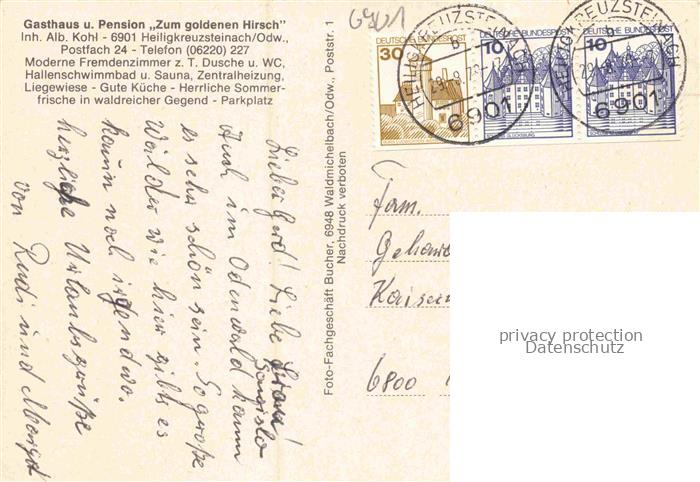 Gasthaus u. Pension „Zum goldenen Hirsch"
Inh. Alb. Kohl - 6901 Heiligkreuzsteinach/Odw.,
Postfach 24 - Telefon (06220) 227
Moderne Fremdenzimmer z. T. Dusche u. WC,
Hallenschwimmbad u. Sauna, Zentralheizung,
Liegewiese - Gute Küche - Herrliche Sommer-
frische in waldreicher Gegend - Parkplatz
6901
Lieber Gerd! Liebe
Auch im Odenwald kann
es sehr schön sein. So große
Wälder wie hier gibt es
kaum noch irgendwo.
herzliche Urlaubsgrüße
von Rudi und Margot
Foto-Fachgeschäft Bucher, 6948 Waldmichelbach/Odw., Poststr. 1
Nachdruck verboten
30
DEUTSCHE BUNDESPOST
10
DEUTSCHE BUNDESPOST
GLÜCKSBURG
10
DEUTSCHE BUNDESPOST
HEILIGKREUZSTEINACH
b
6901
HEILIGKREUZSTEINACH
b
6901
Fam.
6800
privacy protection
Datenschutz